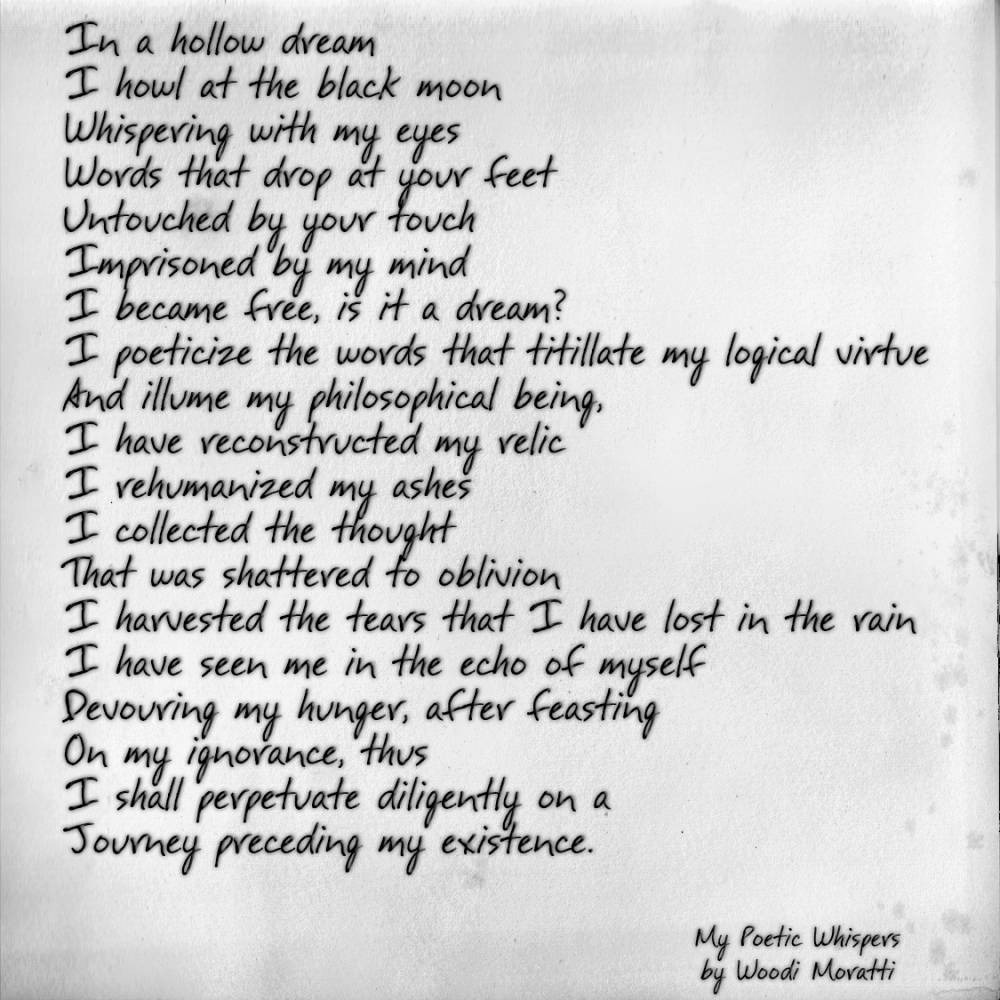 In a hollow dream
I howl at the black moon
Whispering with my eyes
Words that drop at your feet
Untouched by your touch
Imprisoned by my mind
I became free, is it a dream?
I poeticize the words that titillate my logical virtue
And illume my philosophical being,
I have reconstructed my relic
I rehumanized my ashes
I collected the thought
That was shattered to oblivion
I harvested the tears that I have lost in the rain
I have seen me in the echo of myself
Devouring my hunger, after feasting
On my ignorance, thus
I shall perpetuate diligently on a
Journey preceding my existence.
My Poetic Whispers
by Woodi Moratti